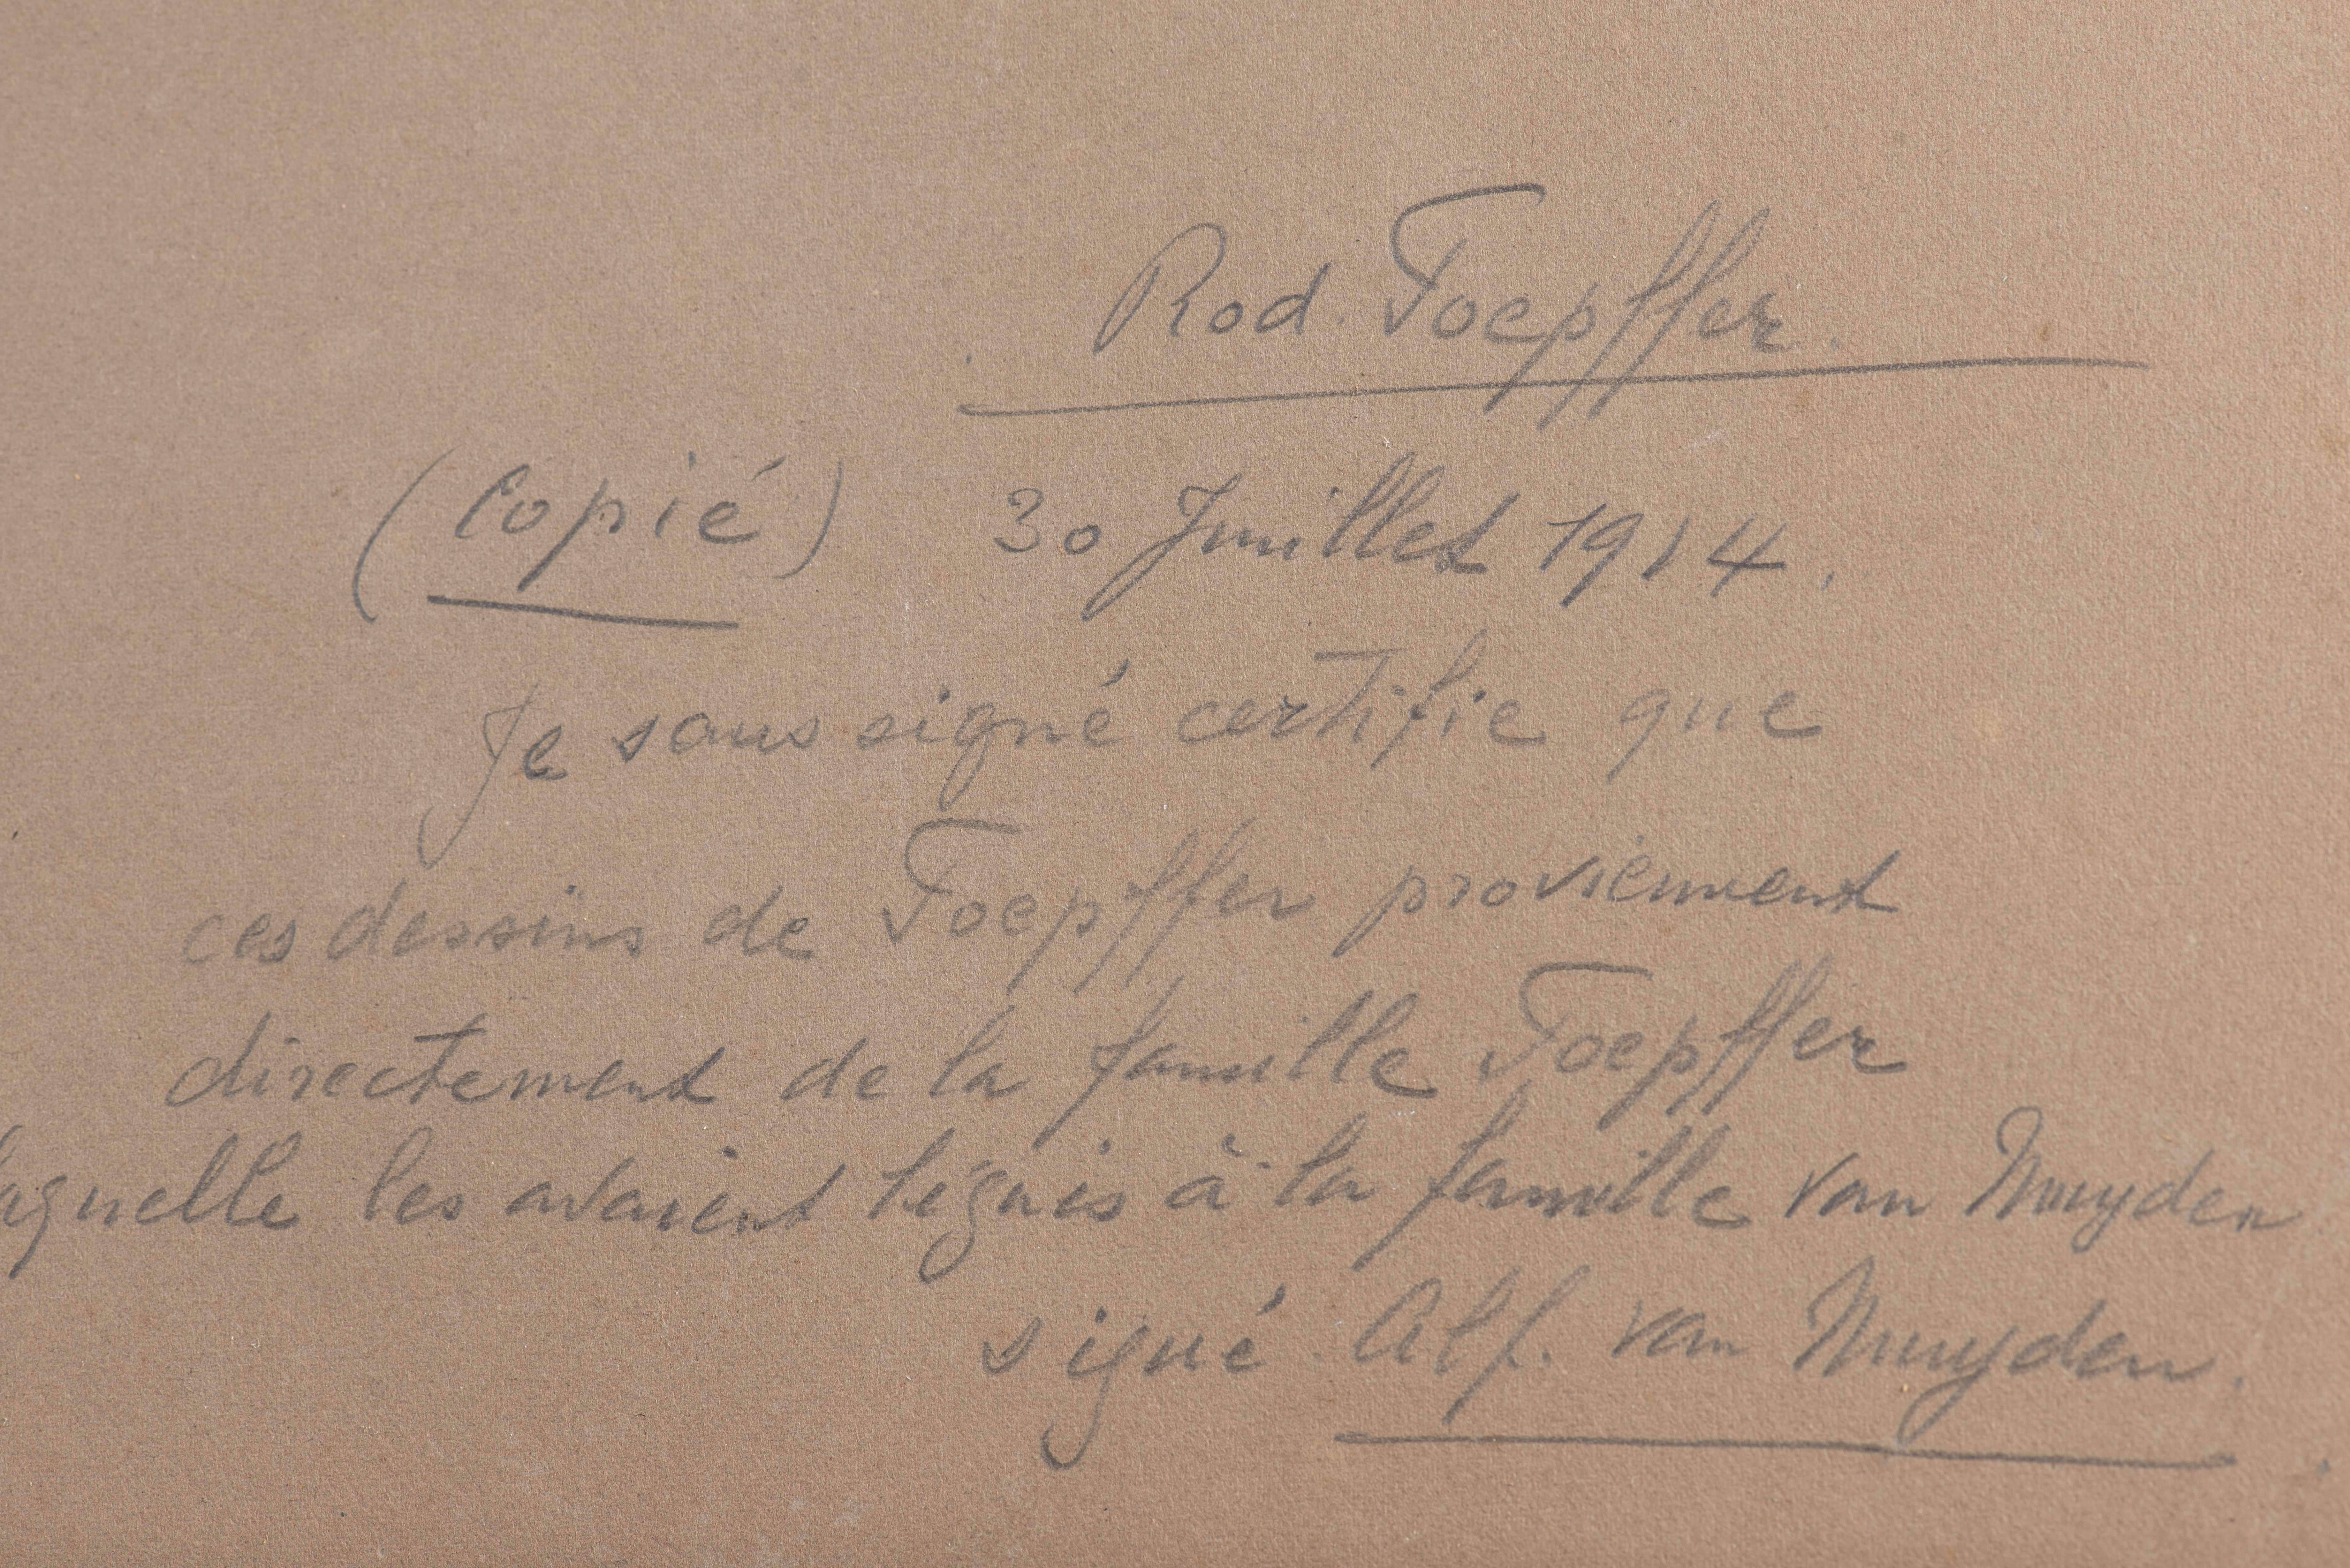 Rod. Toepffer.
(Copié) 30 Juillet 1914.
Je soussigné certifie que
ces dessins de Toepffer proviennent
directement de la famille Toepffer
laquelle les avaient légués à la famille van Muyden
signé. Alf. van Muyden.